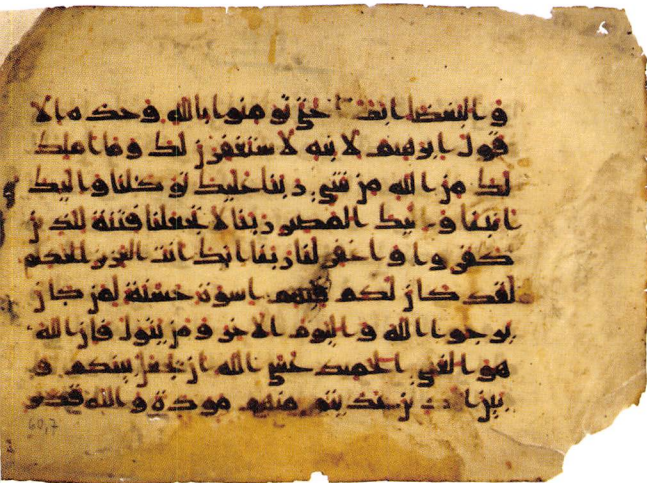 والبغضا ابدا حتى تومنوا بالله وحده الا
قول ابرهيم لابيه لاستغفرن لك وما املك
لك من الله من شي ربنا عليك توكلنا واليك
انبنا واليك المصير ربنا لا تجعلنا فتنة للذين
كفروا واغفر لنا ربنا انك انت العزيز الحكيم
لقد كان لكم فيهم اسوة حسنة لمن كان
يرجوا الله واليوم الاخر ومن يتول فان الله
هو الغني الحميد عسى الله ان يجعل بينكم و
بين الذين عاديتم منهم مودة والله قدير
60,7